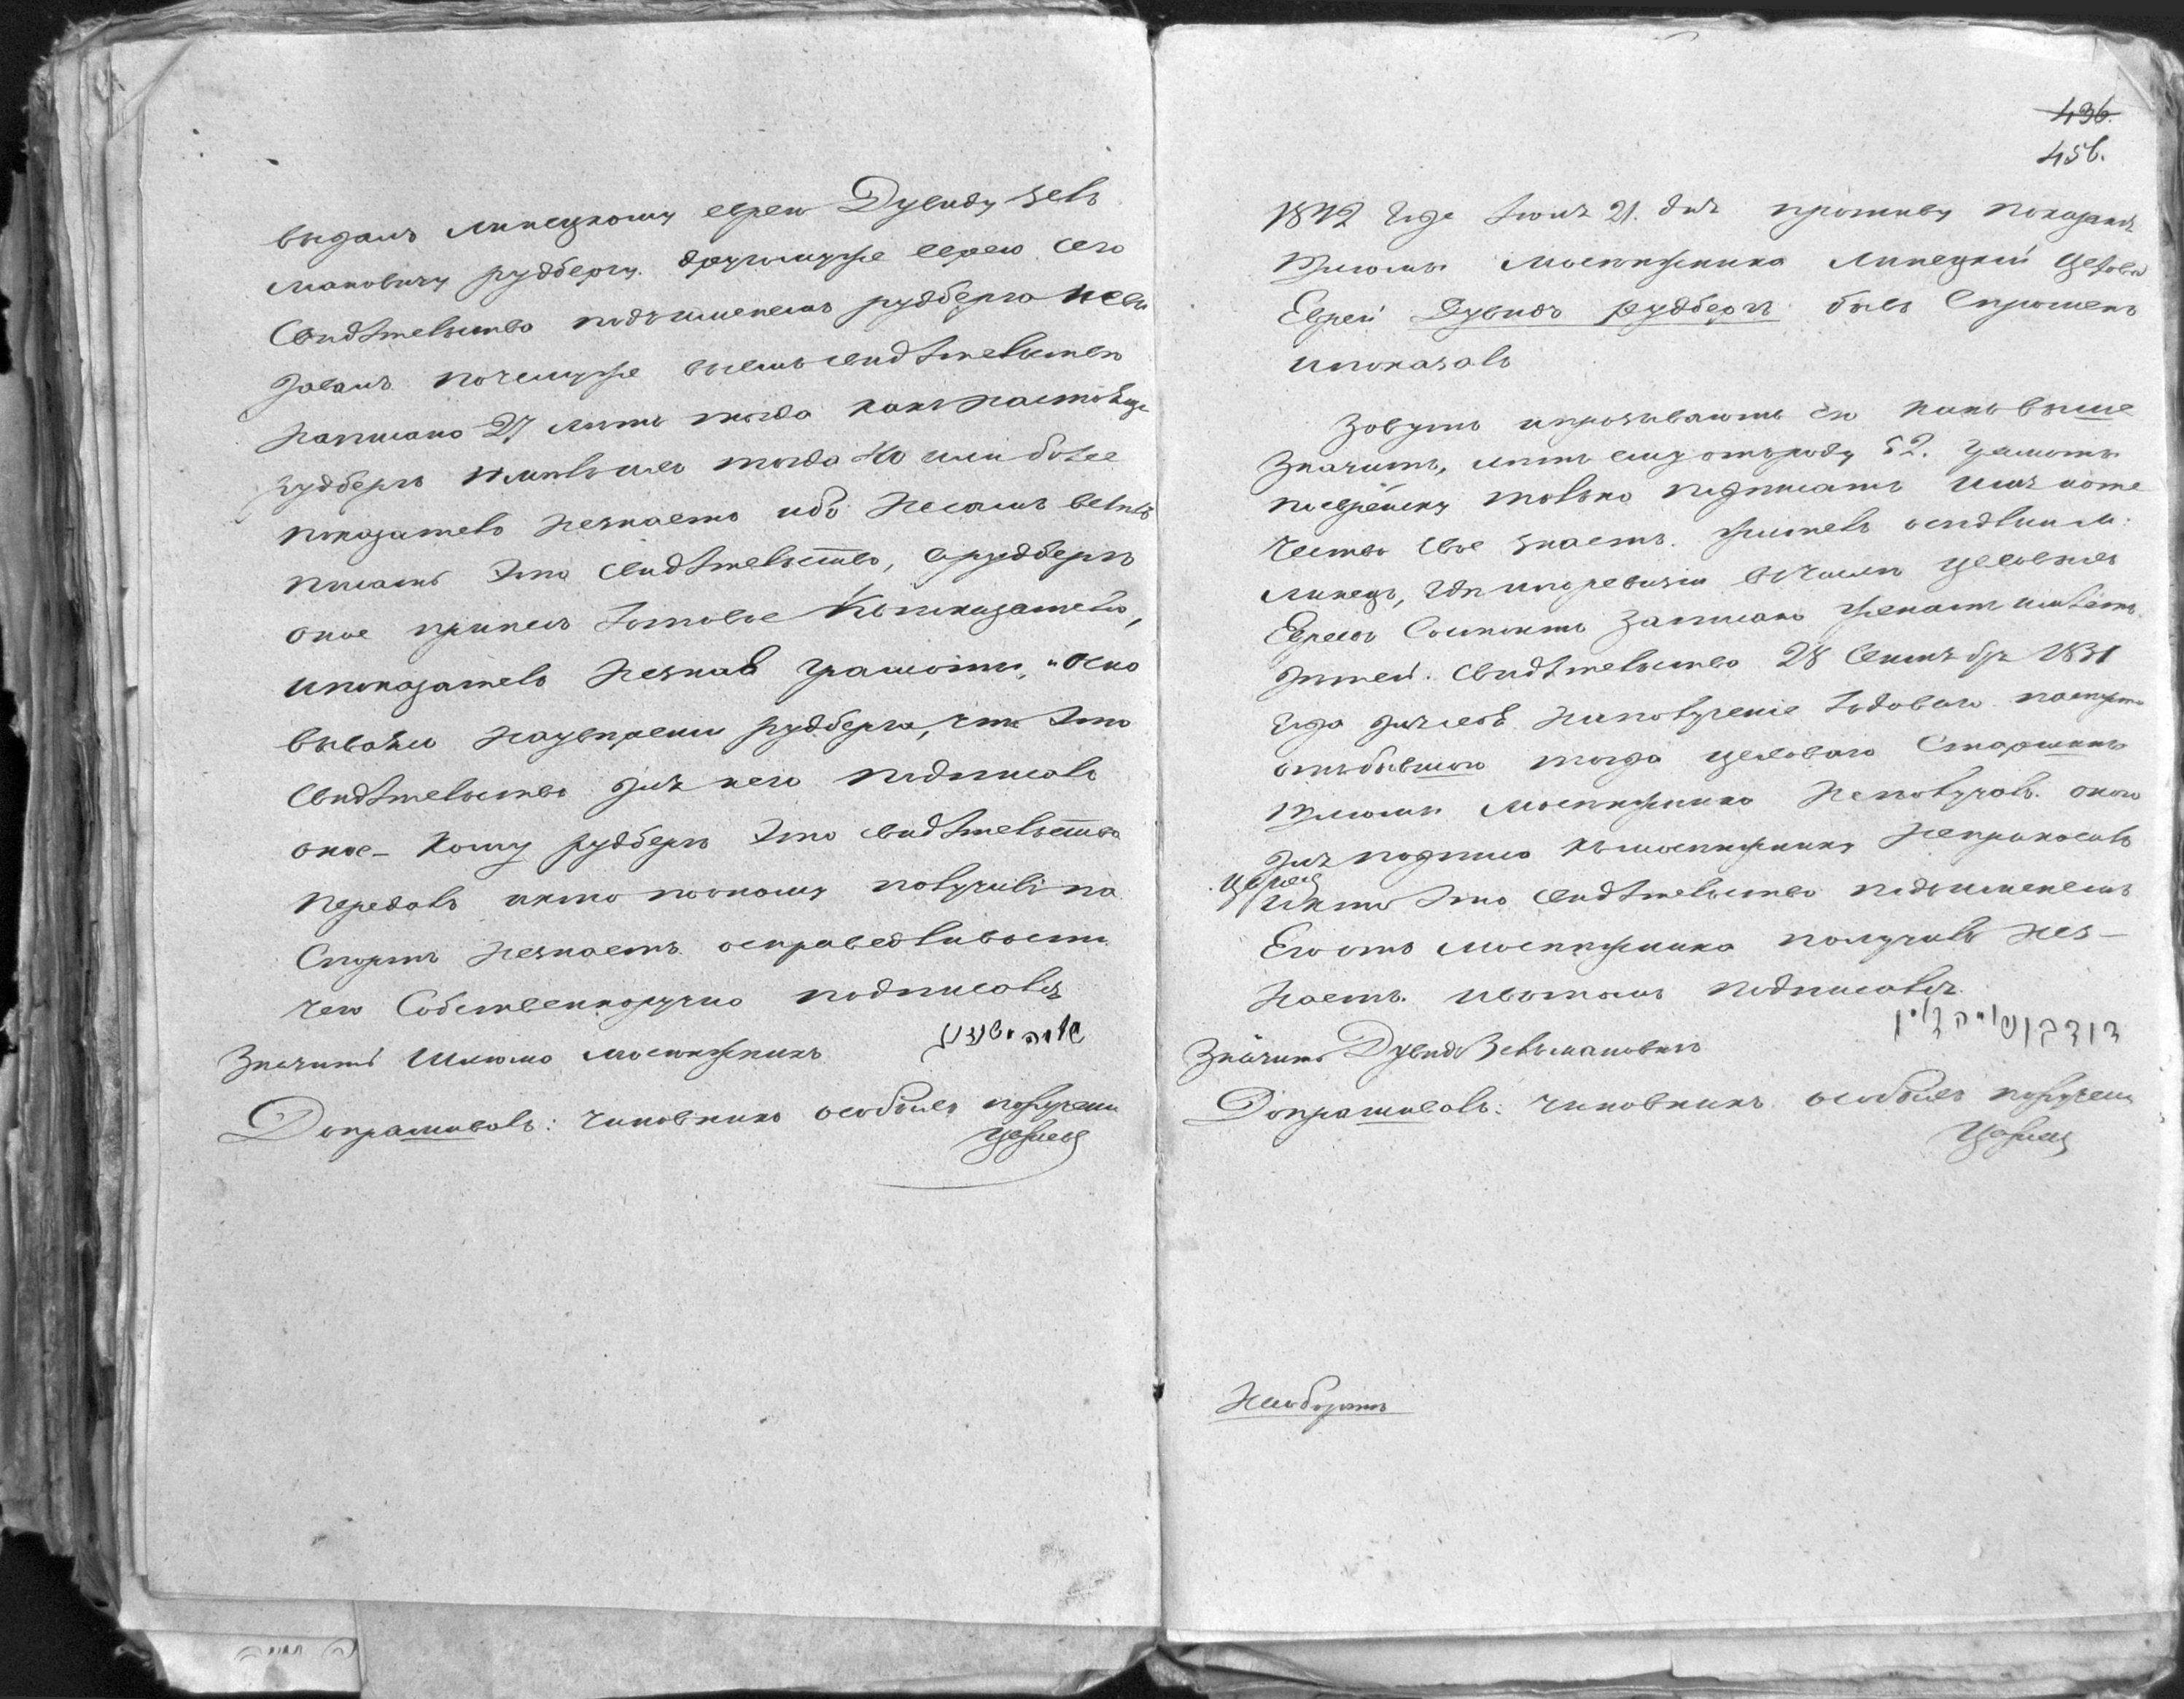 выданъ Липецкому еврею Дувиду Зель
мановичу рудбергу. другомуже еврею сего
Свидѣтельства подъименемъ рудберга невы
давалъ почемуже въемъ свидѣтельствѣ
написано 27 лѣтъ тогда какъ настоящій
рудбергъ имѣвшему тогда 40 или более
показатель незнаетъ ибо несамъ велѣлъ
писать это свидѣтельство, арудбергъ
оное принесъ готовое Къпоказателю,
ипоказатель незная грамоты, осно
вываясь наувѣрении рудберга, что это
свидѣтельство для него подписалъ
оное – Кому рудбергъ это свидѣтельство
передалъ икто поономъ получилъ па
спортъ незнаетъ всправедливости
чего Собственноручно подписался
Значитъ Шлиома Москижникъ
Допрашивалъ: Чиновникъ особыхъ порученій
436.
456.
1842 года Іюня 21. дня противу показанія
Шлиомы Москижника Липецкій цеховой
Еврей Дувидъ рудбергъ былъ спрошенъ
ипоказалъ
Зовутъ ипрозываютъ его какъ выше
значитъ, лѣтъ ему отъроду 52. грамоты
поеврейску только подписать имя иоте
чество свое знаетъ. житель осѣдлый м:
Липецъ, гдѣ ипоревизіи вчислѣ цеховыхъ
Евреевъ Состоитъ записанъ женатъ имѣетъ
дѣтей. Свидѣтельства 28 Сентября 1831
года для себя наполученіе годоваго паспорта
отъбывшаго тогда цеховаго Старшины
Шлиомы Москижника неполучалъ оного
для подписи къмоскижнику неприносилъ
икто это свидѣтельство подъименемъ
Его отъ москижника получилъ нез–
наетъ. ивтомъ подписался.
Значитъ Дувидъ Зельмановичъ
Допрашивалъ: Чиновникъ особыхъ порученій
Наоборотъ